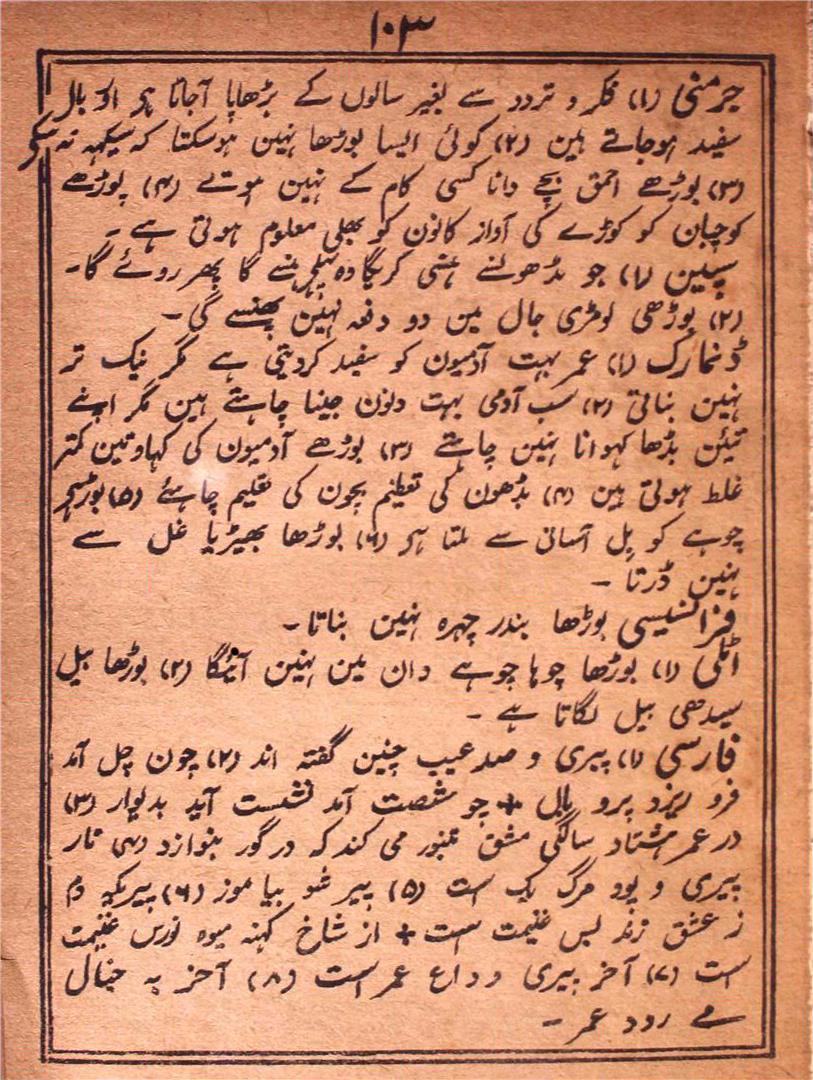 ۱۰۳
جرمنی (۱) فکر و تردد سے بغیر سالوں کے بڑھاپا آجاتا ہی اور بال
سفید ہوجاتے ہین (۲) کوئی ایسا بوڑھا نہین ہوسکتا کہ سیکہہ نہ سکے
(۳) بوڑھے احمق بچے دانا کسی کام کے نہین ہوتے (۴) بوڑھے
کوچبان کو کوڑے کی آواز کانون کو بھلی معلوم ہوتی ہے ۔
سپین (۱) جو بڈھونسے ہنسی کریگا وہ پہلے ہنسے گا پھر روئے گا۔
(۲) بوڑھی لومڑی جال مین دو دفعہ نہین پھنسے گی ۔
ڈنمارک (۱) عمر بہت آدمیون کو سفید کردیتی ہے مگر نیک تر
نہین بناتی (۲) سب آدمی بہت دنون جینا چاہتے ہین مگر اپنے
تیئن بڈھا کہوانا نہین چاہتے (۳) بوڑھے آدمیون کی کہاوتین کمتر
غلط ہوتی ہین (۴) بڈھون کی تعظیم بچون کی تعلیم چاہئے (۵) بوڑھے
چوہے کو بل آسانی سے ملتا ہی (۶) بوڑھا بھیڑیا غل سے
نہین ڈرتا ۔
فرانسیسی بوڑھا بندر چہرہ نہین بناتا ۔
اٹلی (۱) بوڑھا چوہا چوہے دان مین نہین آئیگا (۲) بوڑھا بیل
سیدھی بیل لگاتا ہے ۔
فارسی (۱) پیری و صد عیب چنین گفتہ اند (۲) چون چل آمد
فرو ریزد پرو بال + چو شصت آمد نشست آید بدیوار (۳)
در عمر ہشتاد سالگی مشق تنبور می کند کہ در گور بنوازد (۴) تار
پیری و پود مرگ یک است (۵) پیر شو بیاموز (۶) پیریکہ دم
ز عشق زند بس غنیمت است + از شاخ کہنہ میوہ نورس غنیمت
است (۷) آخر پیری وداع عمر است (۸) آخر بہ خیال
مے رود عمر ۔